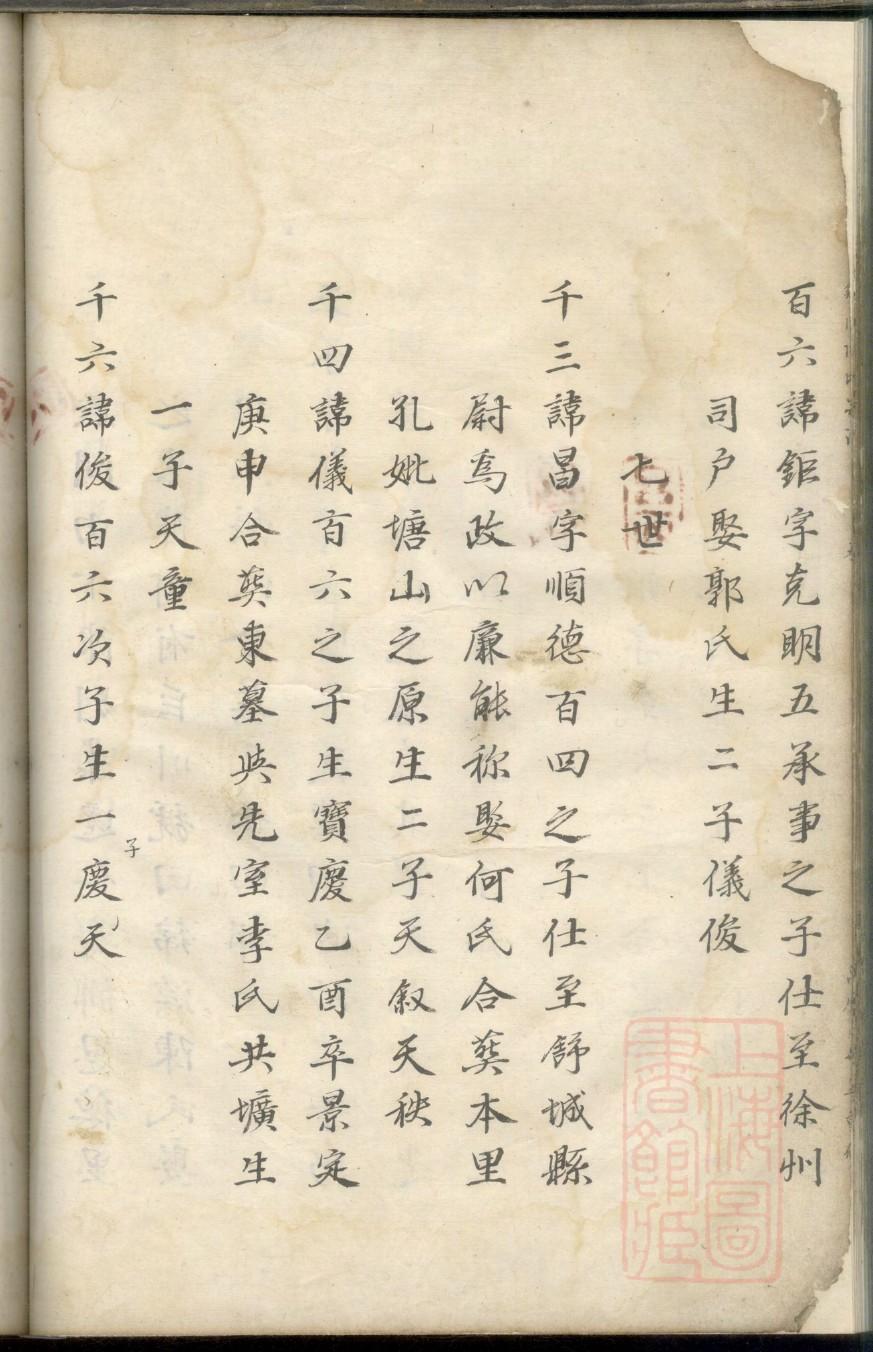 百六諱鉅字克明五承事之子仕至徐州
司戶娶郭氏生二子儀俊
七世
千三諱昌字順德百四之子仕至舒城縣
尉為政以廉能称娶何氏合葬本里
孔姚塘山之原生二子天叙天秩
千四諱儀百六之子生寶慶乙酉卒景定
庚申合葬東墓與先室李氏共壙生
一子天童
千六諱俊百六次子生一子慶天
上海圖書館藏